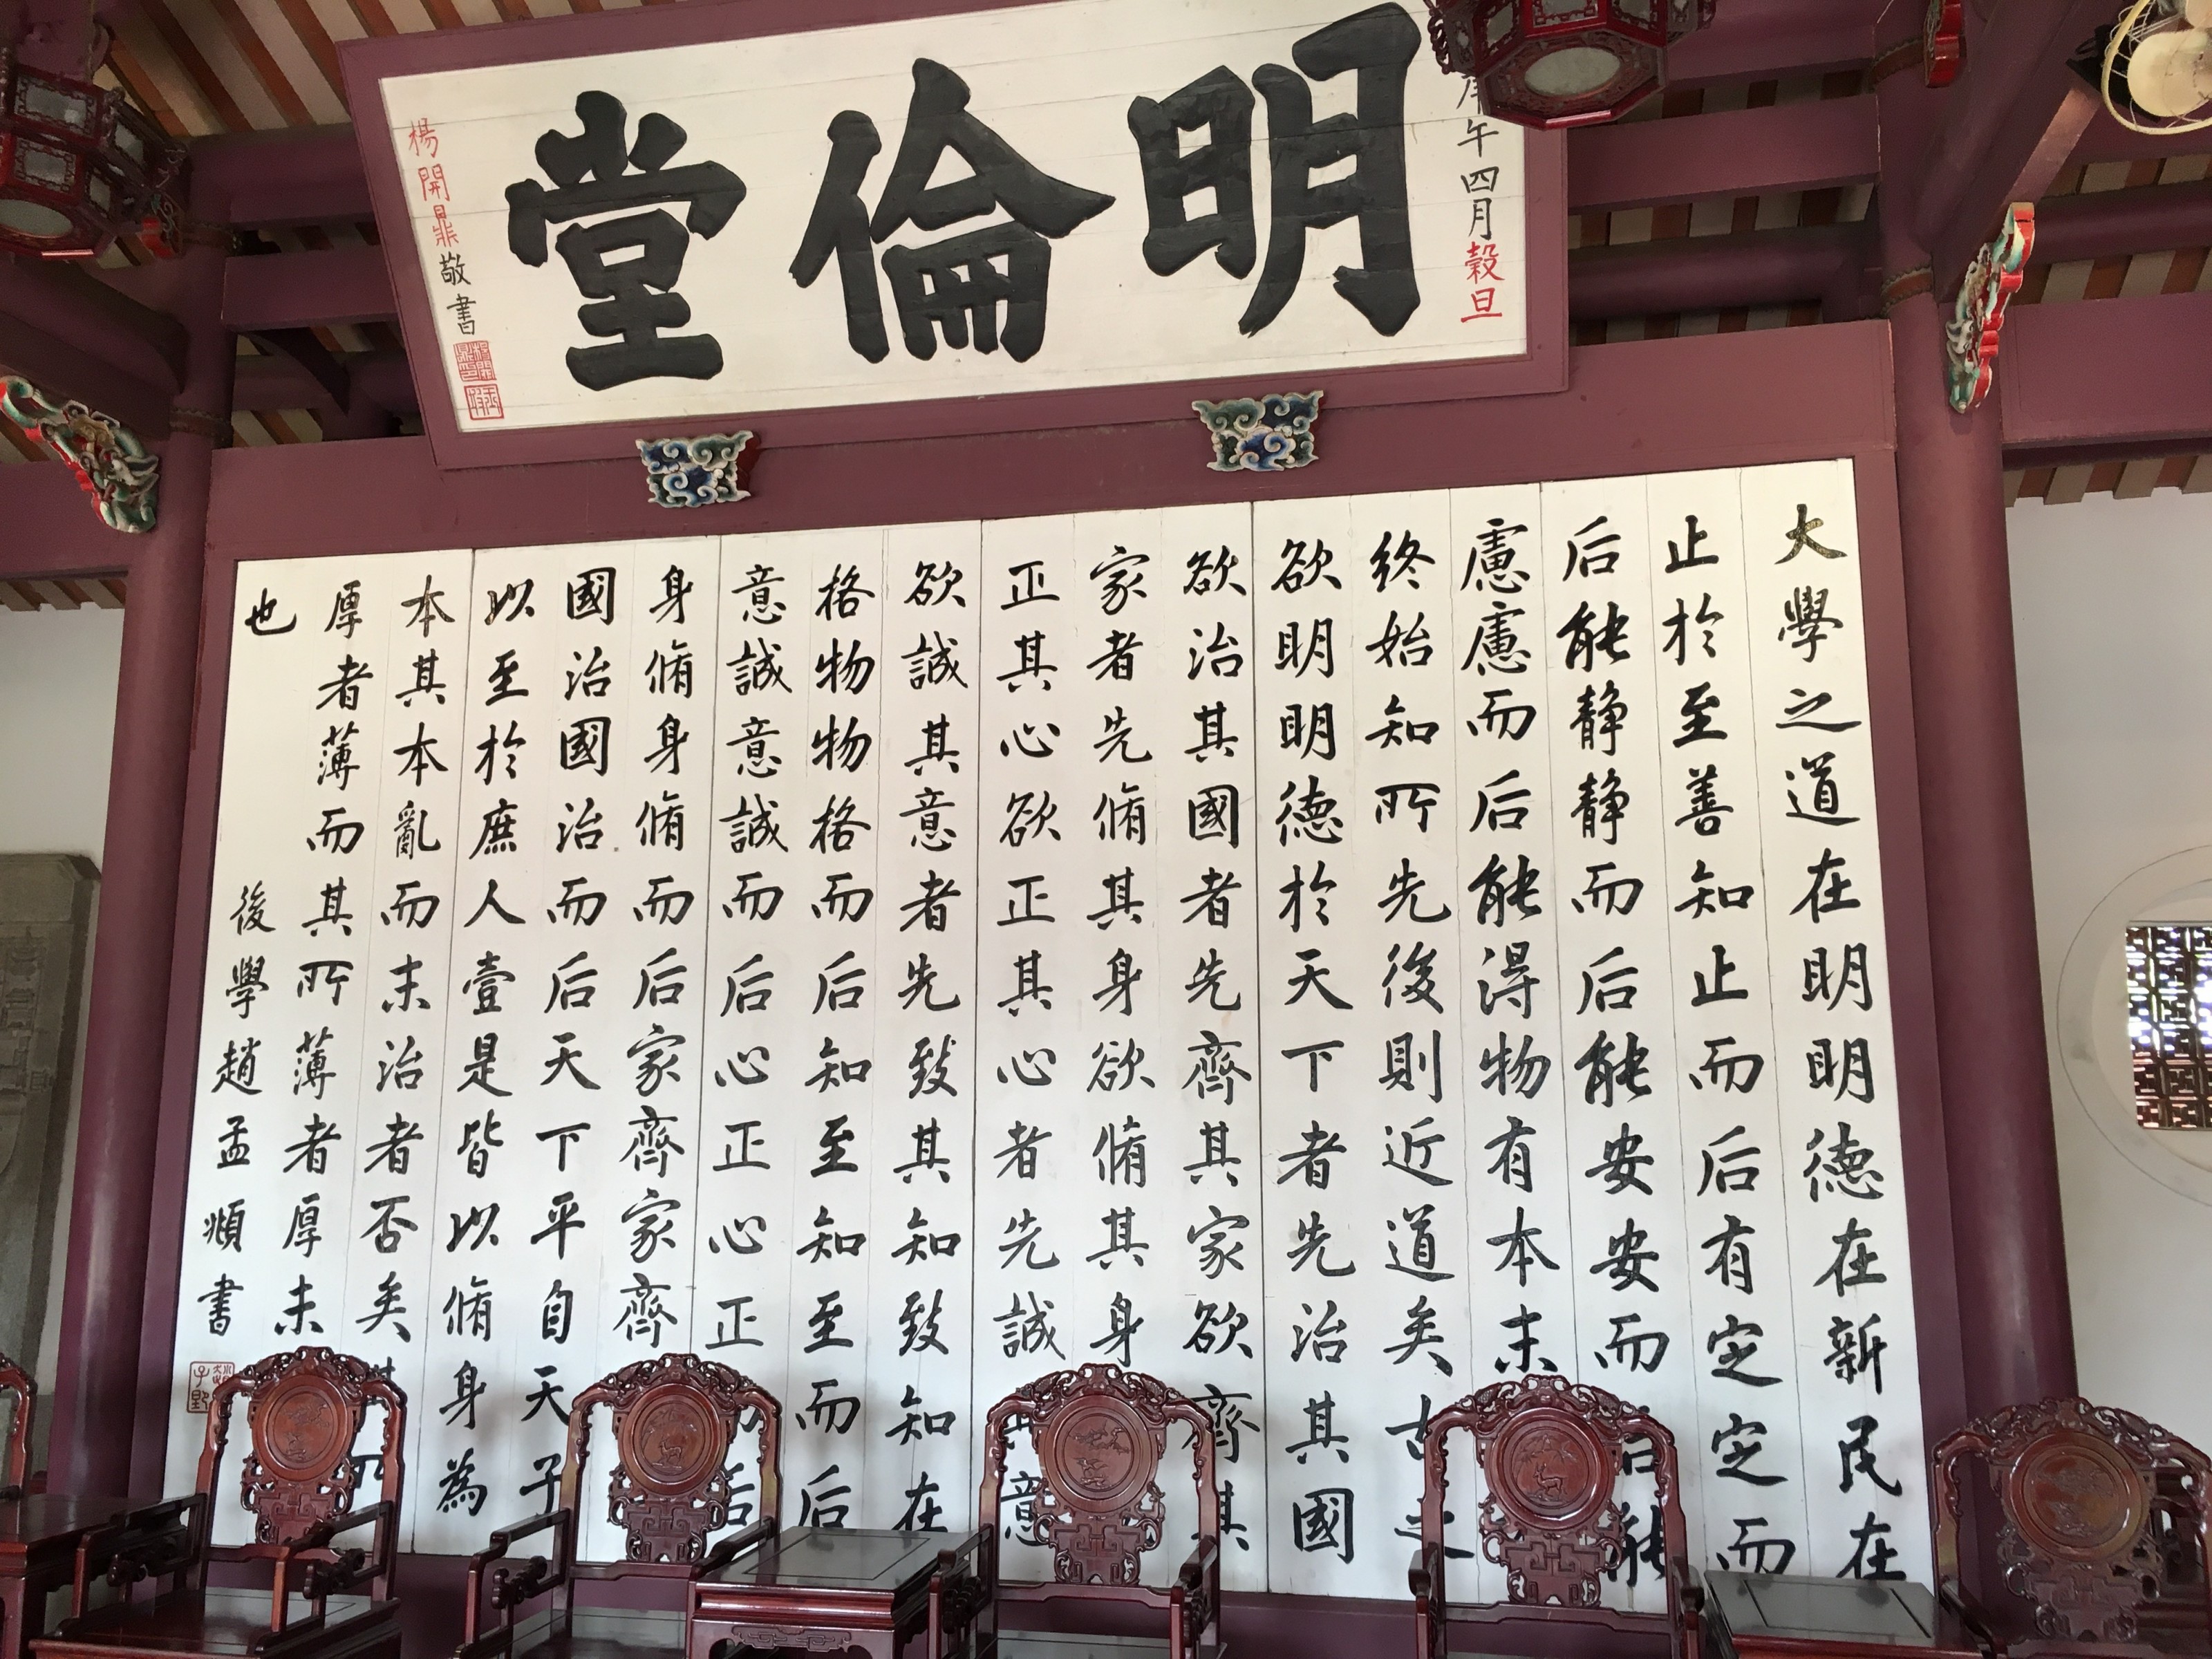 庚午四月穀旦
明倫堂
楊開鼎敬書
大學之道在明明德在新民在
止於至善知止而后有定定而
后能静静而后能安安而后能
慮慮而后能得物有本末
終始知所先後則近道矣古之
欲明明德於天下者先治其國
欲治其國者先齊其家欲齊其
家者先脩其身欲脩其身
正其心欲正其心者先誠其意
欲誠其意者先致其知致知在
格物物格而后知至知至而后
意誠意誠而后心正心正而后
身脩身脩而后家齊家齊
國治國治而后天下平自天子
以至於庶人壹是皆以脩身為
本其本亂而末治者否矣其所
厚者薄而其所薄者厚未
也
後學趙孟頫書